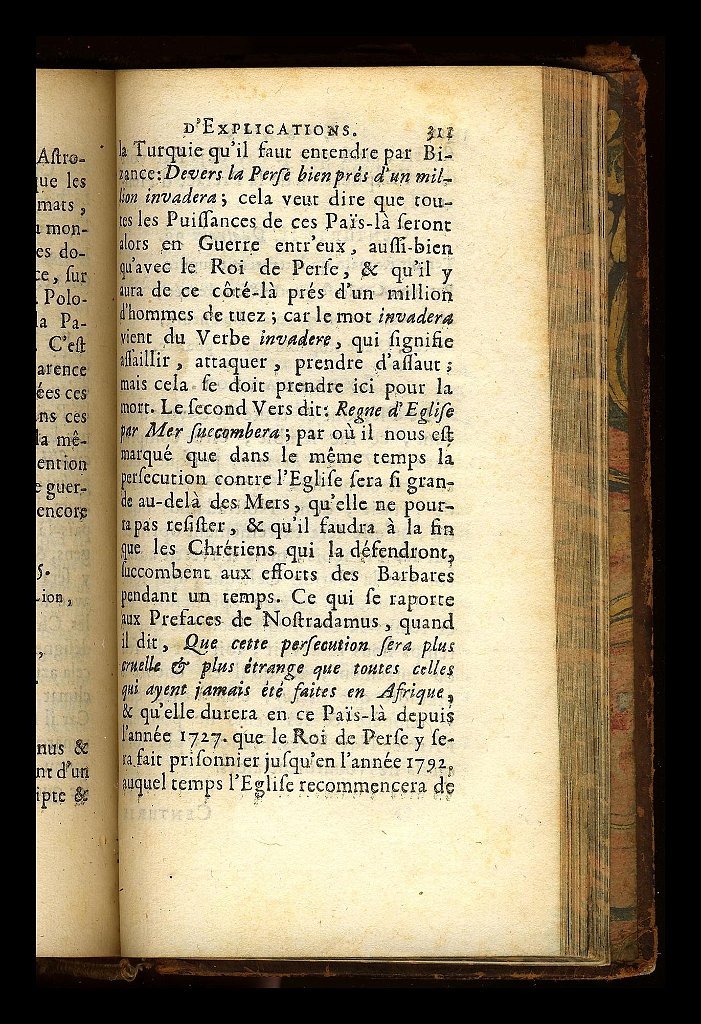 Aſtro-
que les
mats,
mon-
es do-
ce, ſur
Polo-
la Pa-
C'eſt
arence
ées ces
ns ces
la mê-
ention
e guer-
encore
5.
Lion,
nus &
nt d'un
ipte &
D'EXPLICATIONS. 311
la Turquie qu'il faut entendre par Bi-
zance: Devers la Perſe bien prés d'un mil-
lion invadera; cela veut dire que tou-
tes les Puiſſances de ces Païs-là ſeront
alors en Guerre entr'eux, auſſi-bien
qu'avec le Roi de Perſe, & qu'il y
aura de ce côté-là prés d'un million
d'hommes de tuez; car le mot invadera
vient du Verbe invadere, qui ſignifie
aſſaillir, attaquer, prendre d'aſſaut;
mais cela ſe doit prendre ici pour la
mort. Le ſecond Vers dit: Regne d'Egliſe
par Mer ſuccombera; par où il nous eſt
marqué que dans le même temps la
perſecution contre l'Egliſe ſera ſi gran-
de au-delà des Mers, qu'elle ne pour-
ra pas reſiſter, & qu'il faudra à la fin
que les Chrétiens qui la défendront,
ſuccombent aux efforts des Barbares
pendant un temps. Ce qui ſe raporte
aux Prefaces de Noſtradamus, quand
il dit, Que cette perſecution ſera plus
cruelle & plus étrange que toutes celles
qui ayent jamais été faites en Afrique,
& qu'elle durera en ce Païs-là depuis
l'année 1727. que le Roi de Perſe y ſe-
ra fait priſonnier juſqu'en l'année 1792,
auquel temps l'Egliſe recommencera de